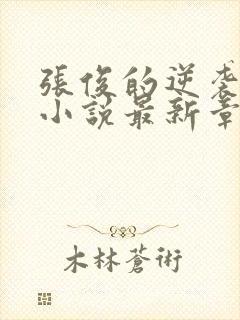 張俊的逆袭
小說最新章
木林蒼術